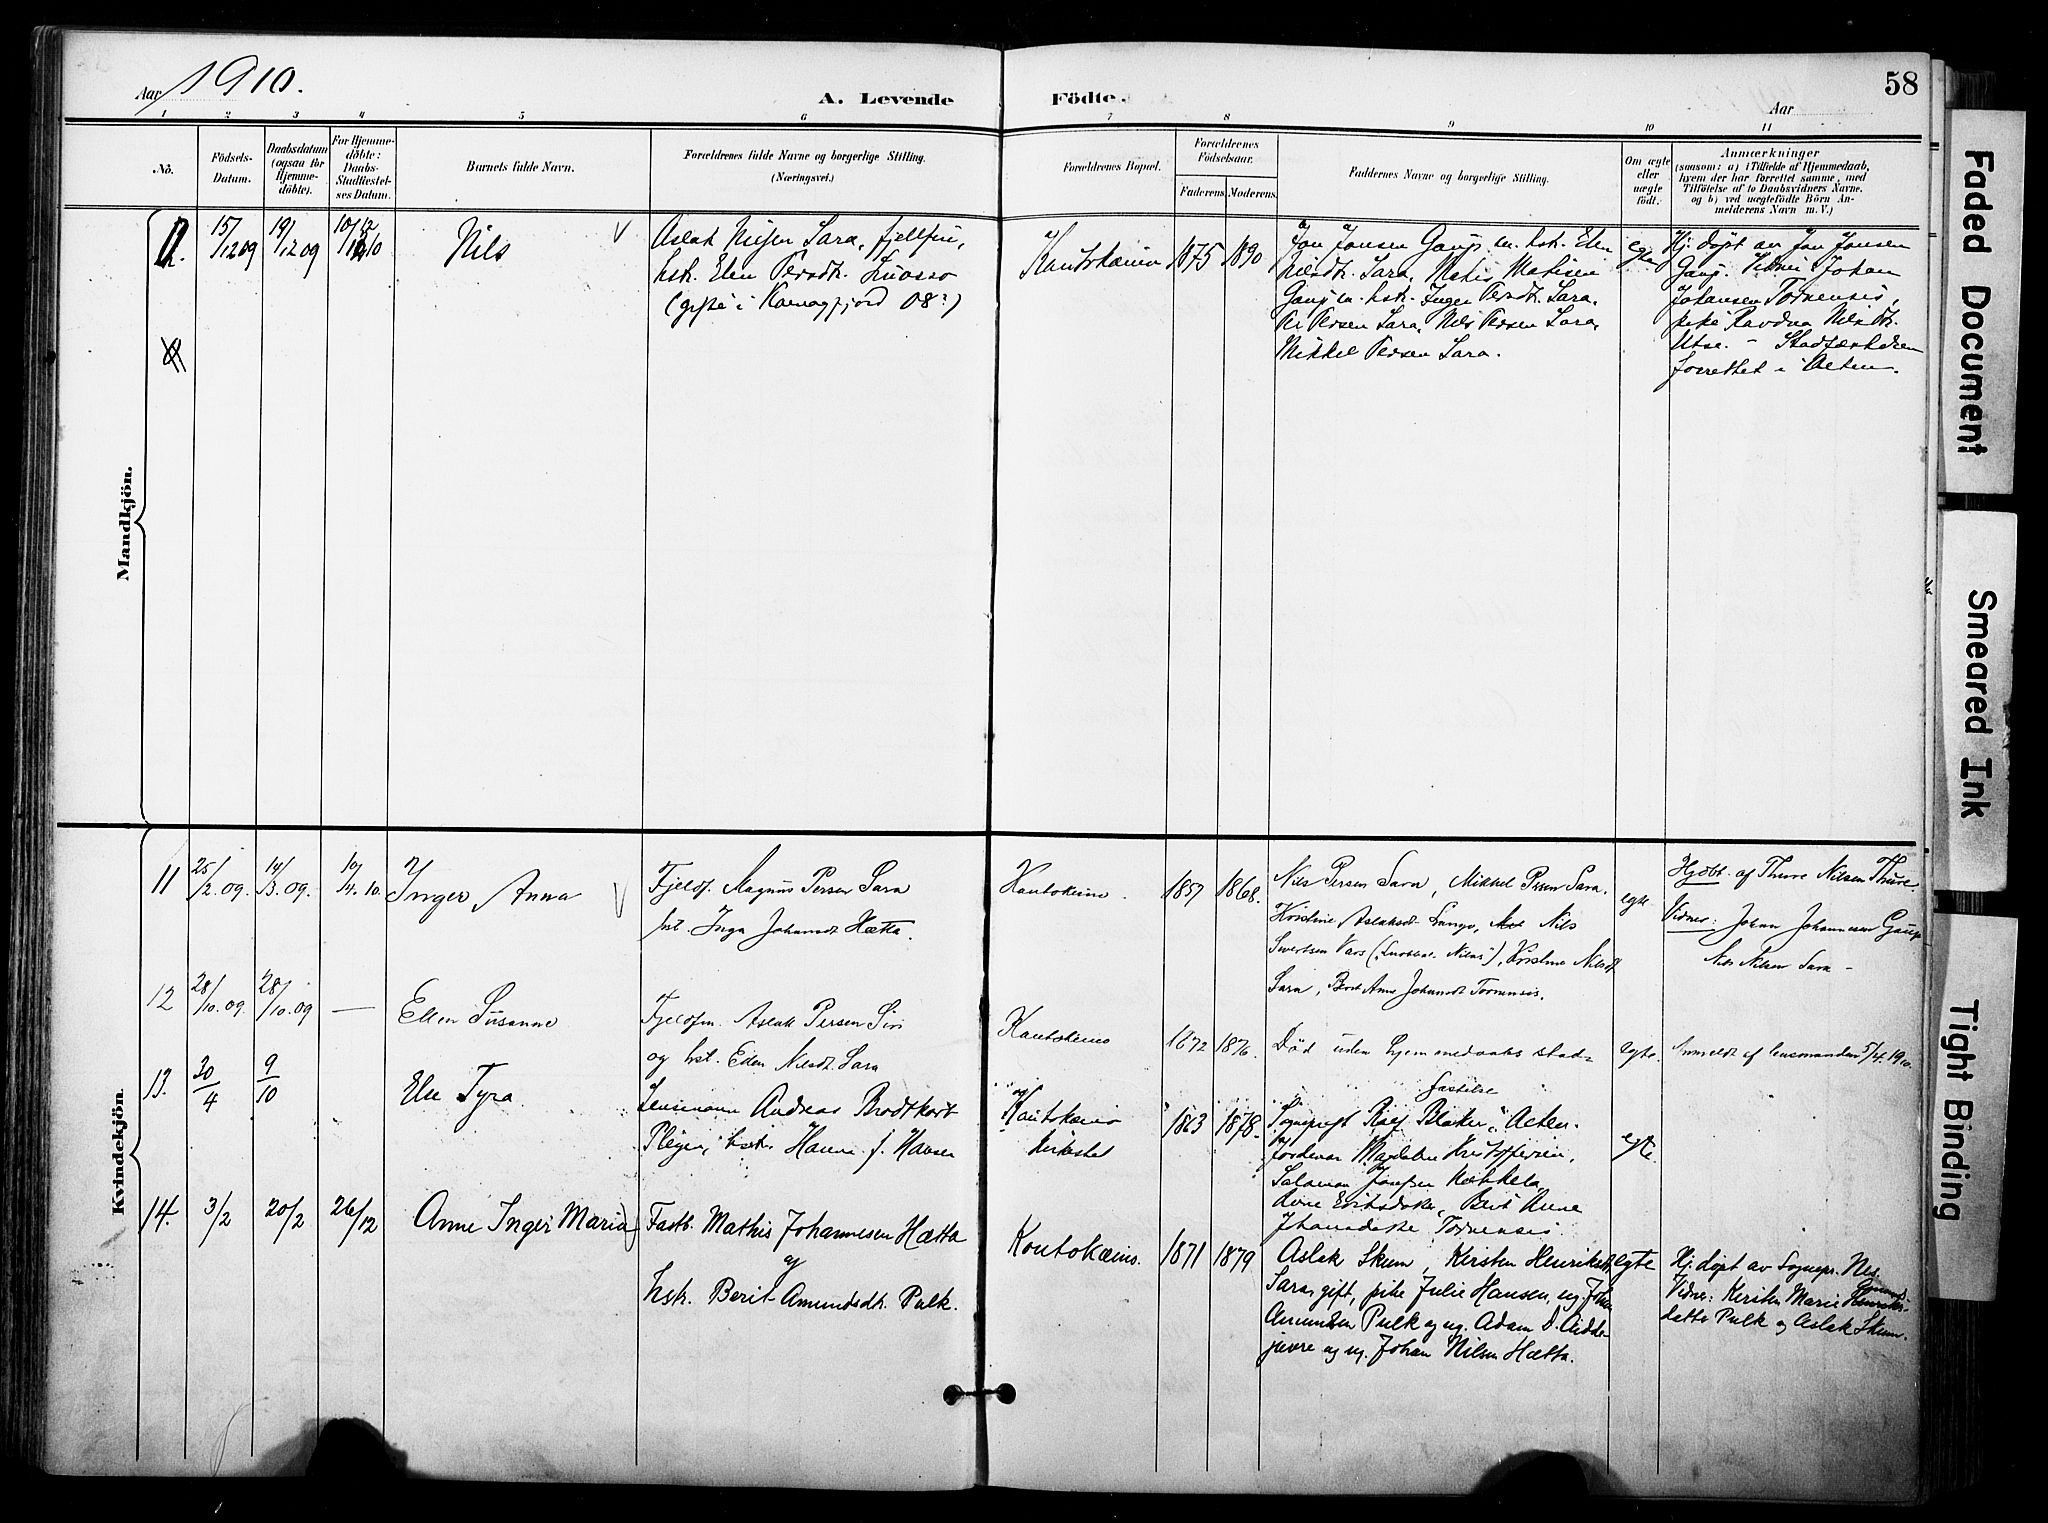 Aar 1910.
A. Levende
Födte.
Aar
58
1 2 3 4 5 6 7 8 9 10 11
No.
Födsels-
Datum.
Daabsdatum
(ogsaa for
Hjemme-
döbte).
For Hjemme-
döbte:
Daabs-
Stadfæstel-
ses Datum.
Barnets fulde Navn.
Forældrenes fulde Navne og borgerlige Stilling.
(Næringsvei.)
Forældrenes Bopæl.
Forældrenes
Födselsaar.
Faderens. Moderens.
Faddernes Navne og borgerlige Stilling.
Om ægte
eller
uægte
födt.
Anmærkninger
(saasom: a) i Tilfælde af Hjemmedaab,
hvem der har forrettet samme, med
Tilföielse af to Daabsvidners Navne,
og b) ved uægtefödte Börn An-
melderens Navn m. V.)
Mandkjön.
15/12 09
19/12 09
Nils
V
Aslak Nilsen Sara, fjellfin,
hst. Elen Persdt.
(gifte i Kvænagfjord 08?)
Kautokeino
1875
1890
Jon Jonsen Gaup m. hst. Elen
Nilsdt. Sara, Matis Matisen
Gaup m. hst. Inger Persdt. Sara,
Per Persen Sara, Nils Persen Sara,
Mikkel Persen Sara.
egte
Hj. døpt av Jon Jonsen
Gaup. Vidner: Johan
Johansen Tornensis,
pike Ravdna Nilsdt.
Utse. – Stadfæstelsen
forrettet i Alten.
Kvindekjön.
11
25/2. 09.
14/3. 09.
10/4. 10.
Inger Anna
V
Fjeldf. Magnus Persen Sara
hst. Inga Johansdt Hætta.
Kautokeino.
1857
1868.
Nils Persen Sara, Mikkel Persen Sara.
Kristine Aslaksdt Nils
Sivertsen Vars Kristine Nilsdt
Sara, Berit Anne Johansdt Tornensis.
egte
Hjdbt. af Thure Nilsen Thure.
Vidner: Johan Johannesen Gaup
Nils Nilsen Sara –
12
28/10. 09.
28/10. 09
—
Ellen Susanne
Fjeldfin. Aslak Persen Siri
og hst. Eden Nilsdt. Sara
Kautokeino
1872
1876.
Død uden hjemmedaabs stad-
fæstelse
egte.
Anmeldt af lensmanden 5/4. 1910.
13.
30/4
9/10
Else Tyra
Lensmann Andreas Brodtkorb
Pleym, hustru Hanna f. Hansen
Kautokeino
kirkested
1863
1878.
Sognepr
Jordemor Magdalene
Salamon Jansen Kokkela,
Anne Berit Anne
Johansdatter Tornensis.
egte.
14.
3/2
20/2
26/12
Anne Inger Maria
Fastb. Mathis Johannesen Hætta
og
hst. Berit Amundsdt. Pulk.
Kautokæino.
1871
1879
Aslak Skum, Kersten Henriksdt.
Sara, gift, pike Julie Hansen, ug. Johan
Amundsen Pulk og ug. Adam D. Aidde-
javre og ug. Johan Nilsen Hætta.
egte
Hj. døpt av Sognepr. Nes.
Vidner: Kersten Marie Amunds-
datter Pulk og Aslak Skum.
Faded Document
Smeared Ink
Tight Binding